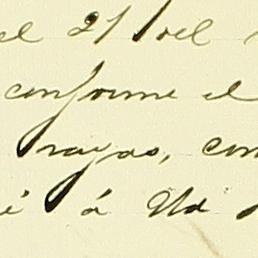 el 21 del
conforme el
rayas, con
é á Ud